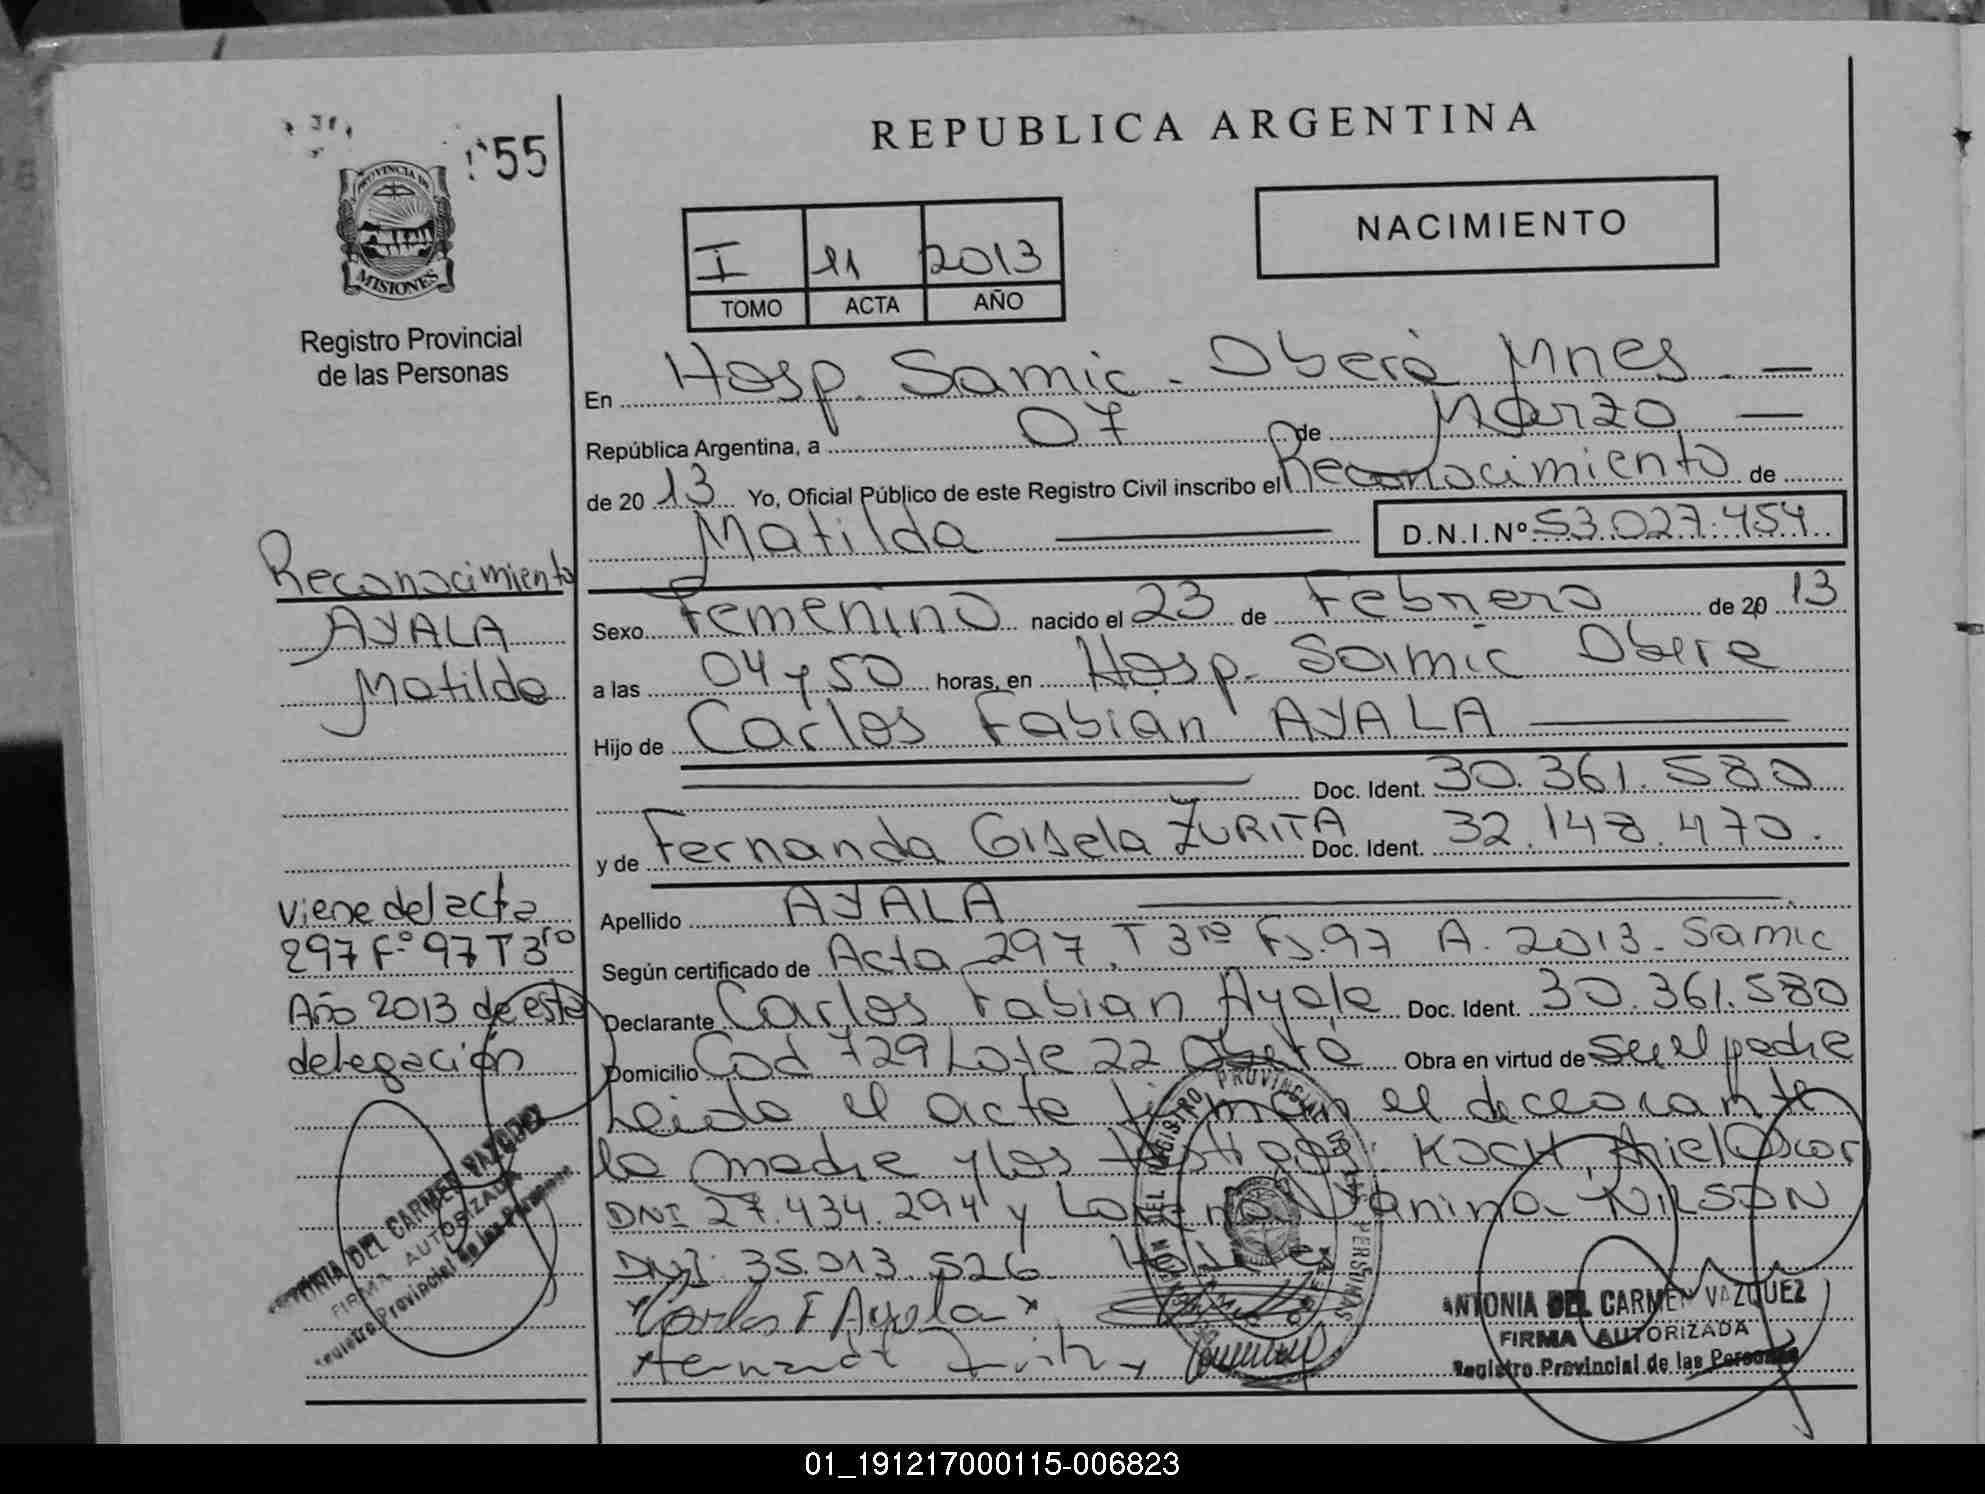 55
REPUBLICA ARGENTINA
PROVINCIA DE
MISIONES
Registro Provincial
de las Personas
I 11 2013
TOMO ACTA AÑO
NACIMIENTO
En Hosp. Samic - Oberá Mnes. —
República Argentina, a 07 de Marzo —
de 2013 Yo, Oficial Público de este Registro Civil inscribo el Reconocimiento de
Matilda D.N.I.Nº 53.027.454
Reconocimiento
AYALA
Matilda
Sexo Femenino nacido el 23 de Febrero de 2013
a las 04 y 50 horas, en Hosp. Samic Obera
Hijo de Carlos Fabian AYALA
Doc. Ident. 30.361.580
y de Fernanda Gisela ZURITA Doc. Ident. 32.148.470.
Apellido AYALA
Según certificado de Acta 297, T 3ro Fs. 97 A. 2013 - Samic
Declarante Carlos Fabian Ayala Doc. Ident. 30.361.580
Domicilio Cod 729 Lote 22 Oberá Obra en virtud de ser el padre
viene del acta
297 Fº 97 T 3ro
Año 2013 de esta
delegación
Leida el acta firman el declarante
la madre y los testigos: KOCH, Ariel Oscar
DNI 27.434.294 y Lorena Yanina NILSON
DNI: 35.013.526
Carlos F Ayala
ANTONIA DEL CARMEN VAZQUEZ
FIRMA AUTORIZADA
Registro Provincial de las Personas
ANTONIA DEL CARMEN VAZQUEZ
FIRMA AUTORIZADA
Registro Provincial de las Personas
01_191217000115-006823